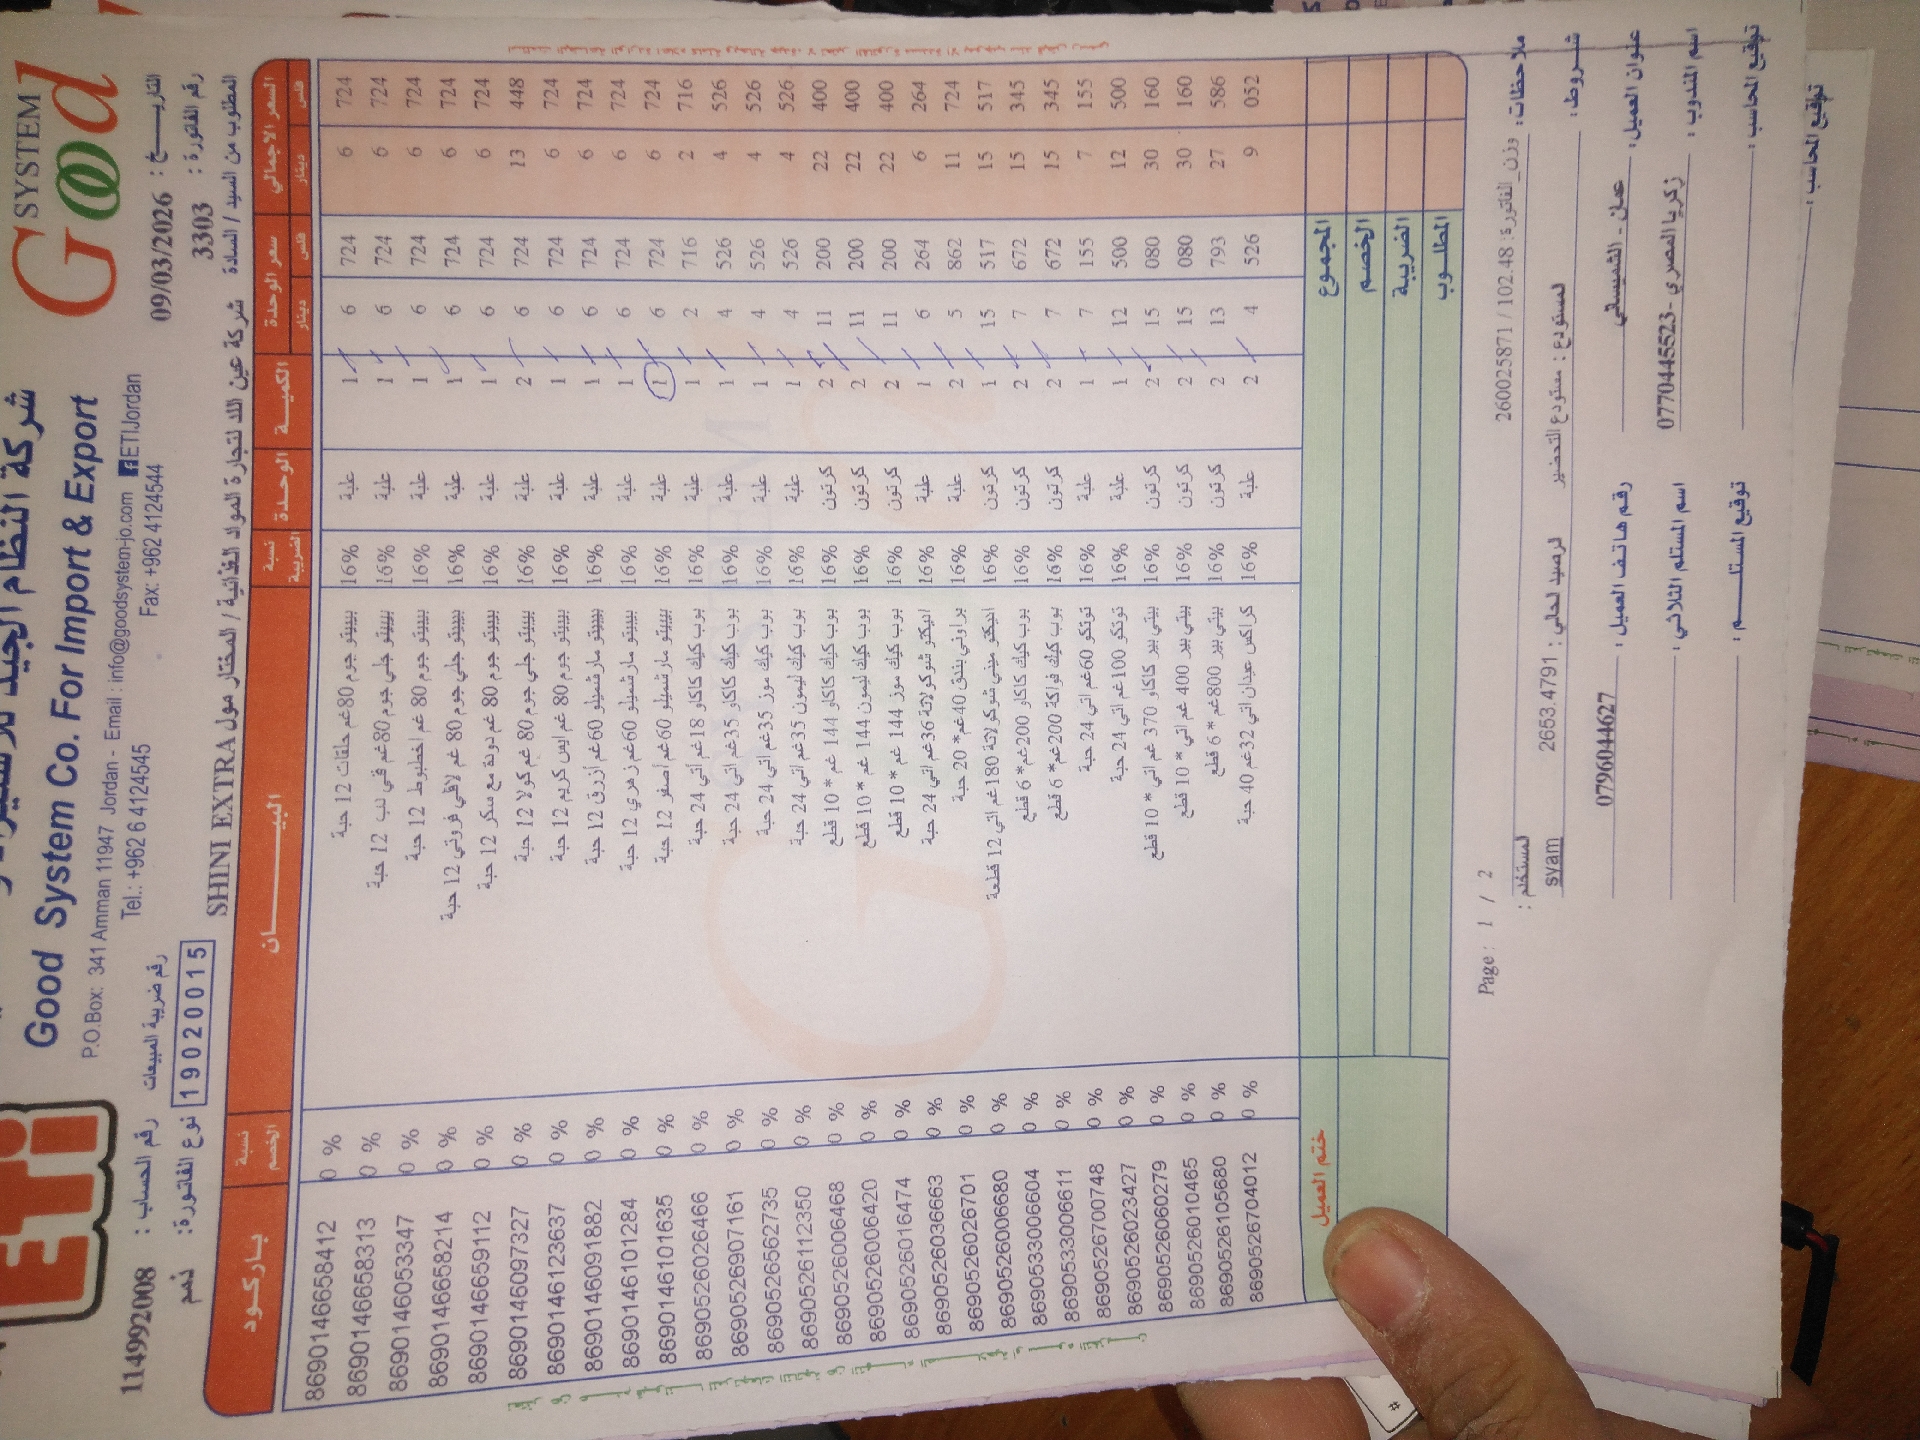 شركة النظام الجيد للاستيراد
Good System Co. For Import & Export
P.O.Box: 341 Amman 11947 Jordan - Email : info@goodsystem-jo.com ETIJordan
Tel.: +962 6 4124545 Fax: +962 6 4124544
ETi
Good SYSTEM
التاريـــخ : 09/03/2026
رقم الفاتورة : 3303
رقم الحساب : 114992008
رقم ضريبة المبيعات
19020015
نوع الفاتورة: ذمم
المطلوب من السيد / السادة شركة عين اللد لتجارة المواد الغذائية / المختار مول SHINI EXTRA
باركود نسبة الخصم البيـــــــان نسبة الضريبة الوحدة الكمية سعر الوحدة السعر الاجمالي
دينار فلس دينار فلس
8690146658412 0 % بيبيتو جوم 80غم حلقات 12 حبة 16% علبة 1 6 724 6 724
8690146658313 0 % بيبيتو جلي جوم 80غم في لب 12 حبة 16% علبة 1 6 724 6 724
8690146053347 0 % بيبيتو جوم 80 غم اخطبوط 12 حبة 16% علبة 1 6 724 6 724
8690146658214 0 % بيبيتو جلي جوم 80 غم لافلي فروتي 12 حبة 16% علبة 1 6 724 6 724
8690146659112 0 % بيبيتو جوم 80 غم دودة مع سكر 12 حبة 16% علبة 1 6 724 6 724
8690146097327 0 % بيبيتو جلي جوم 80 غم كولا 12 حبة 16% علبة 2 6 724 13 448
8690146123637 0 % بيبيتو جوم 80 غم ايس كريم 12 حبة 16% علبة 1 6 724 6 724
8690146091882 0 % بيبيتو مارشميلو 60غم أزرق 12 حبة 16% علبة 1 6 724 6 724
8690146101284 0 % بيبيتو مارشميلو 60غم زهري 12 حبة 16% علبة 1 6 724 6 724
8690146101635 0 % بيبيتو مارشميلو 60غم أصفر 12 حبة 16% علبة 1 6 724 6 724
8690526026466 0 % بوب كيك كاكاو 18غم أتي 24 حبة 16% علبة 1 2 716 2 716
8690526907161 0 % بوب كيك كاكاو 35غم اتي 24 حبة 16% علبة 1 4 526 4 526
8690526562735 0 % بوب كيك موز 35غم اتي 24 حبة 16% علبة 1 4 526 4 526
8690526112350 0 % بوب كيك ليمون 35غم اتي 24 حبة 16% علبة 1 4 526 4 526
8690526006468 0 % بوب كيك كاكاو 144 غم * 10 قطع 16% كرتون 2 11 200 22 400
8690526006420 0 % بوب كيك ليمون 144 غم * 10 قطع 16% كرتون 2 11 200 22 400
8690526016474 0 % بوب كيك موز 144 غم * 10 قطع 16% كرتون 2 11 200 22 400
8690526036663 0 % اديكتو شوكولاتة 36غم اتي 24 حبة 16% علبة 1 6 264 6 264
8690526026701 0 % براوني بندق 40غم* 20 حبة 16% علبة 2 5 862 11 724
8690526006680 0 % اديكتو ميني شوكولاتة 180غم اتي 12 قطعة 16% كرتون 1 15 517 15 517
8690533006604 0 % بوب كيك كاكاو 200غم* 6 قطع 16% كرتون 2 7 672 15 345
8690533006611 0 % بوب كيك فواكة 200غم* 6 قطع 16% كرتون 2 7 672 15 345
8690526700748 0 % توتكو 60غم اتي 24 حبة 16% علبة 1 7 155 7 155
8690526023427 0 % توتكو 100غم اتي 24 حبة 16% علبة 1 12 500 12 500
8690526060279 0 % بيتي بير كاكاو 370 غم اتي * 10 قطع 16% كرتون 2 15 080 30 160
8690526010465 0 % بيتي بير 400 غم اتي * 10 قطع 16% كرتون 2 15 080 30 160
8690526105680 0 % بيتي بير 800غم * 6 قطع 16% كرتون 2 13 793 27 586
8690526704012 0 % كراكس عيدان اتي 32غم 40 حبة 16% علبة 2 4 526 9 052
ختم العميل
المجموع
الخصم
الضريبة
المطلوب
Page : 1 / 2
ملاحظات: وزن_الفاتورة: 102.48 / 260025871
لمستخدم :
شروط :
لمستودع : مستودع التحضير
لرصيد لحالي : 2653.4791
syam
عنوان العميل: عمان - الشميساني
رقم هاتف العميل : 0796044627
اسم المندوب : زكريا المصري -0770445523
اسم المستلم الثلاثي :
توقيع المحاسب :
توقيع المستلـــــم :
توقيع المحاسب :